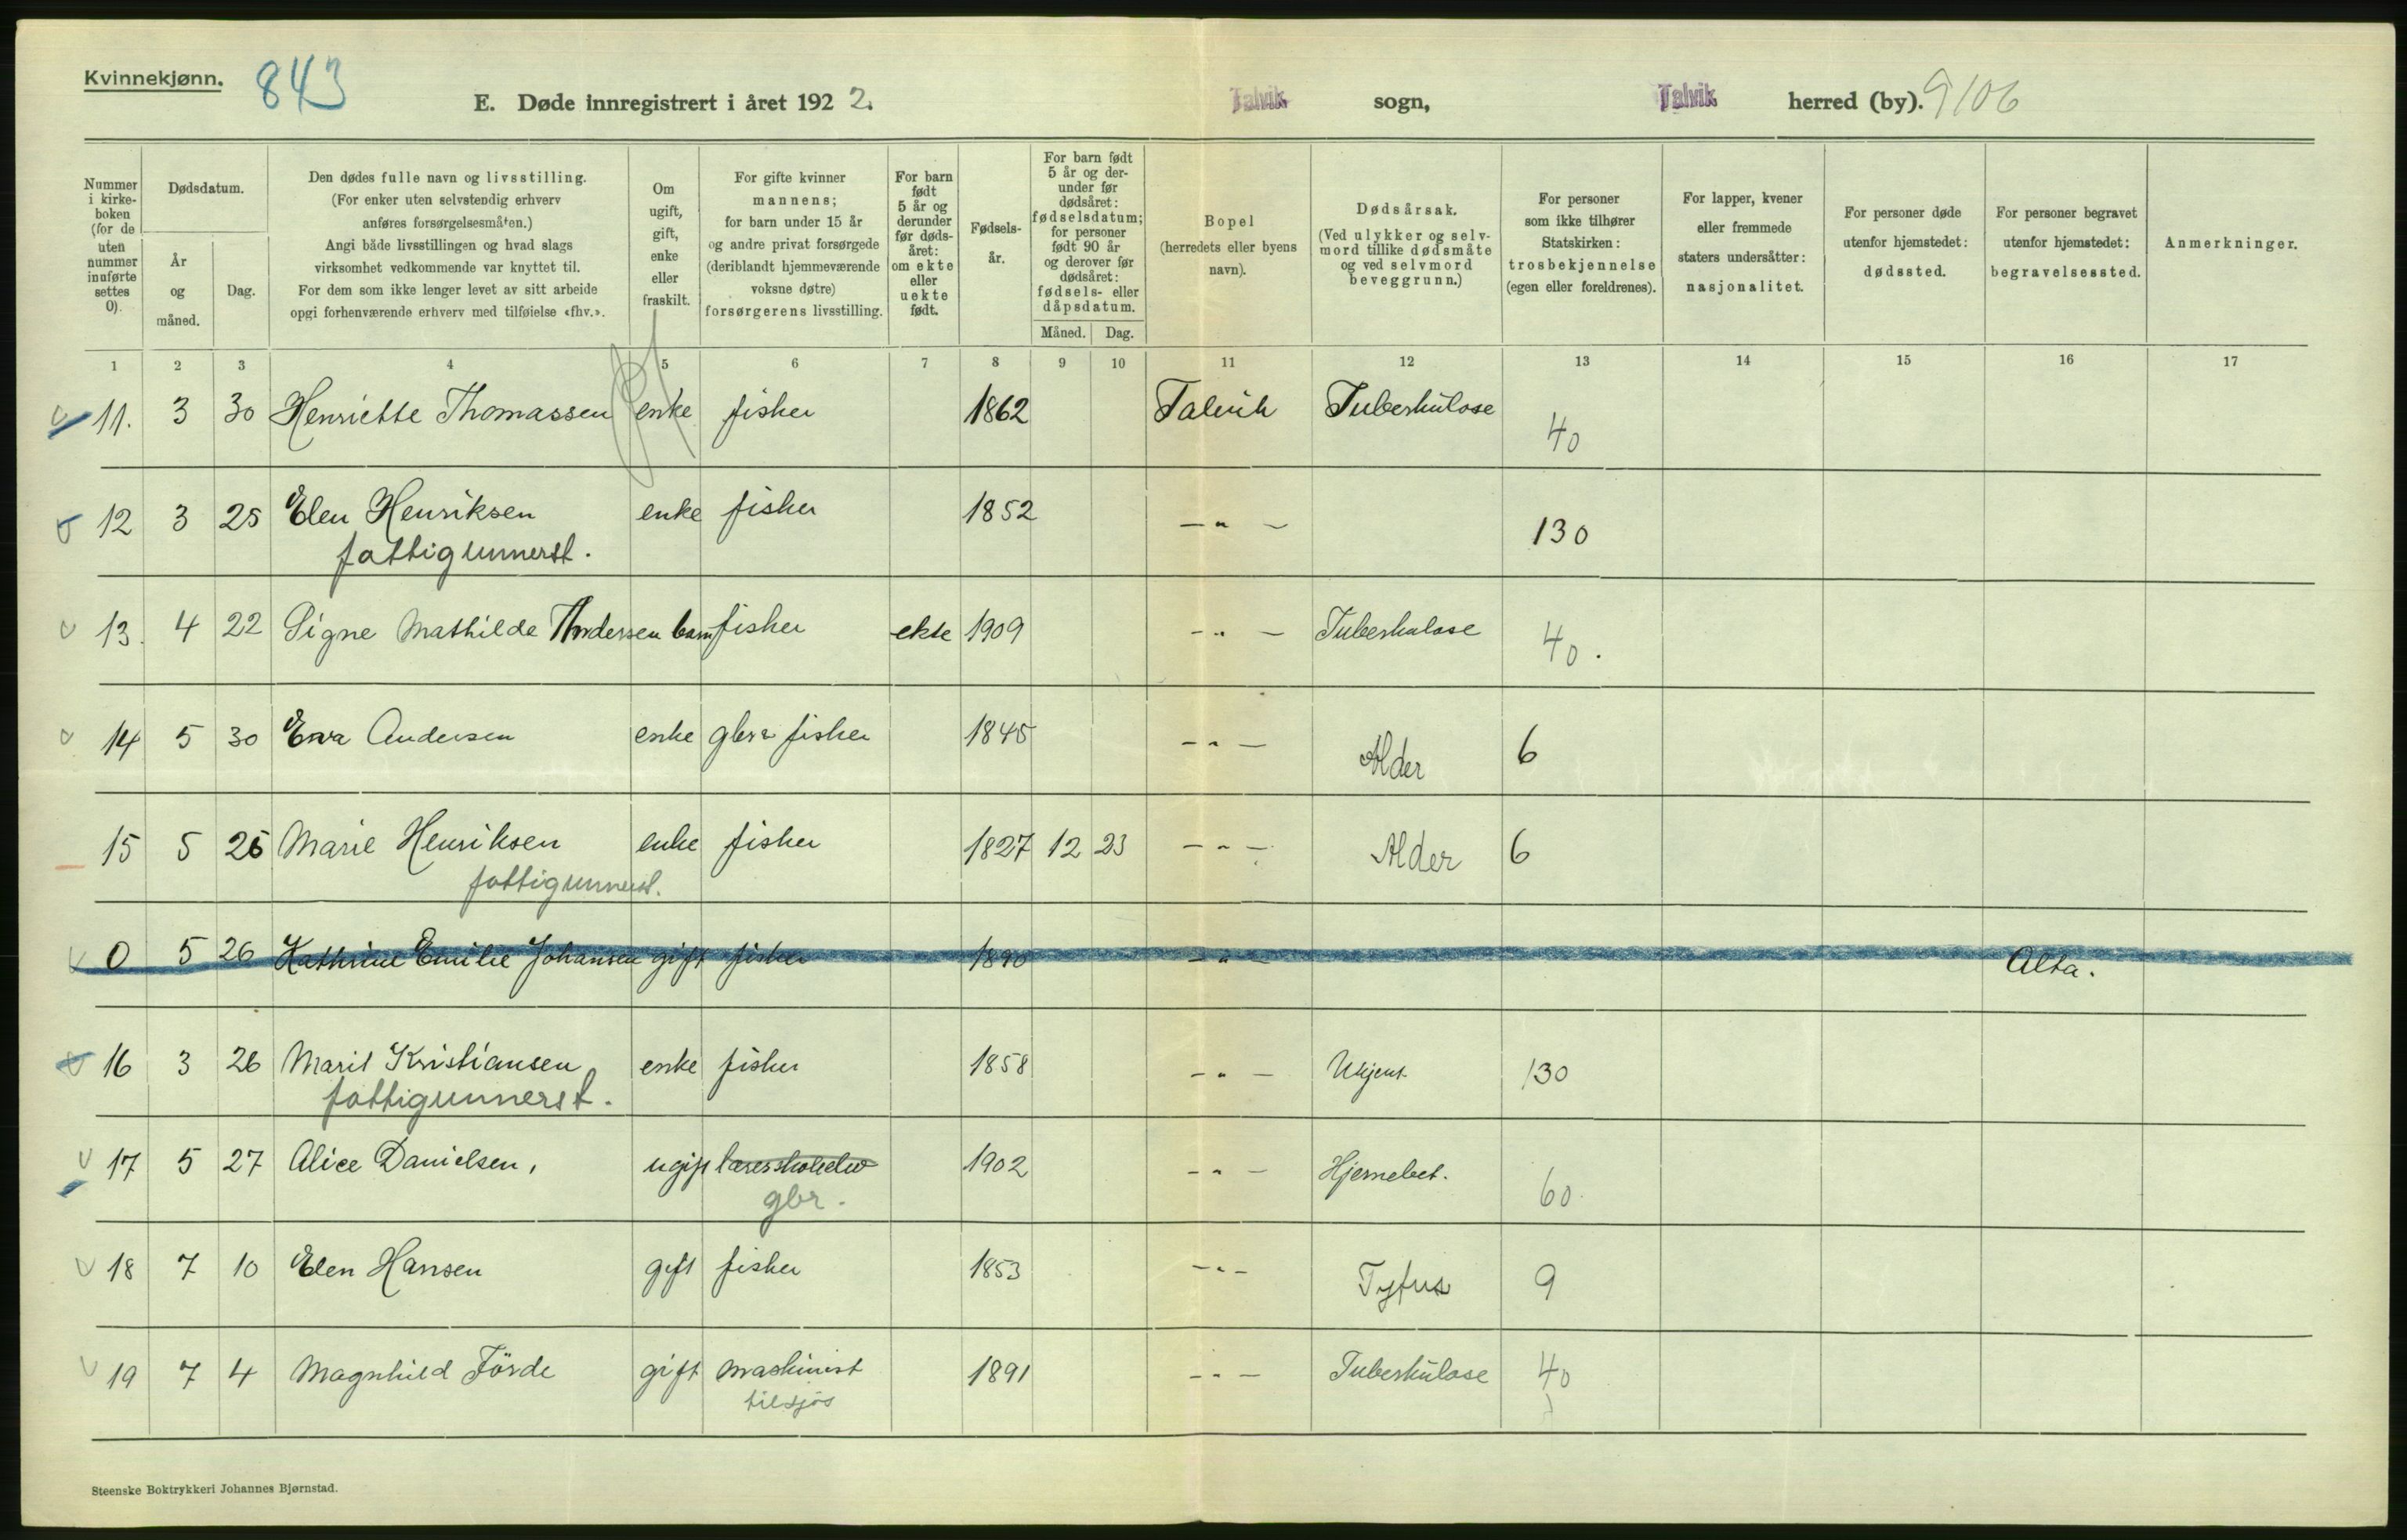 Kvinnekjønn. 843
E. Døde innregistrert i året 1922. Talvik sogn, Talvik herred (by). 9106
Nummer i kirkeboken (for de uten nummer innførte settes 0).
Dødsdatum.
År og måned.
Dag.
Den dødes fulle navn og livsstilling.
(For enker uten selvstendig erhverv
anføres forsørgelsesmåten.)
Angi både livsstillingen og hvad slags
virksomhet vedkommende var knyttet til.
For dem som ikke lenger levet av sitt arbeide
opgi forhenværende erhverv med tilføielse «fhv.».
Om
ugift,
gift,
enke
eller
fraskilt.
For gifte kvinner
mannens;
for barn under 15 år
og andre privat forsørgede
(deriblandt hjemmeværende
voksne døtre)
forsørgerens livsstilling.
For barn
født
5 år og
derunder
før døds-
året:
om ekte
eller
uekte
født.
Fødsels-
år.
For barn født
5 år og der-
under før
dødsåret:
fødselsdatum;
for personer
født 90 år
og derover før
dødsåret:
fødsels- eller
dåpsdatum.
Måned. Dag.
Bopel
(herredets eller byens
navn).
Dødsårsak.
(Ved ulykker og selv-
mord tillike dødsmåte
og ved selvmord
beveggrunn.)
For personer
som ikke tilhører
Statskirken:
trosbekjennelse
(egen eller foreldrenes).
For lapper, kvener
eller fremmede
staters undersåtter:
nasjonalitet.
For personer døde
utenfor hjemstedet:
dødssted.
For personer begravet
utenfor hjemstedet:
begravelsessted.
Anmerkninger.
1 2 3 4 5 6 7 8 9 10 11 12 13 14 15 16 17
11. 3 30 Henriette Thomassen enke fisker 1862 Talvik Tuberkulose 40
12 3 25 Elen Henriksen enke fisker 1852 - " - 130
fattigunnerst.
13. 4 22 Signe Mathilde Andersen barn fisker ekte 1909 - " - Tuberkulose 40.
14 5 30 Eva Andersen enke gbr fisker 1845 - " - Alder 6
15 5 25 Marie Henriksen enke fisker 1827 12 23 - " - Alder 6
fattigunnerst.
0 5 26 Kathrine Emilie Johansen gift fisker 1890 - " - Alta.
16 3 26 Marit Kristiansen enke fisker 1858 - " - Ukjent 130
fattigunnerst.
17 5 27 Alice Danielsen, ugift lærerskoleelev 1902 - " - Hjernebet. 60.
gbr.
18 7 10 Elen Hansen gift fisker 1853 - " - Tyfus 9
19 7 4 Magnhild Förde gift maskinist 1891 - " - Tuberkulose 40
tilsjøs
Steenske Boktrykkeri Johannes Bjørnstad.